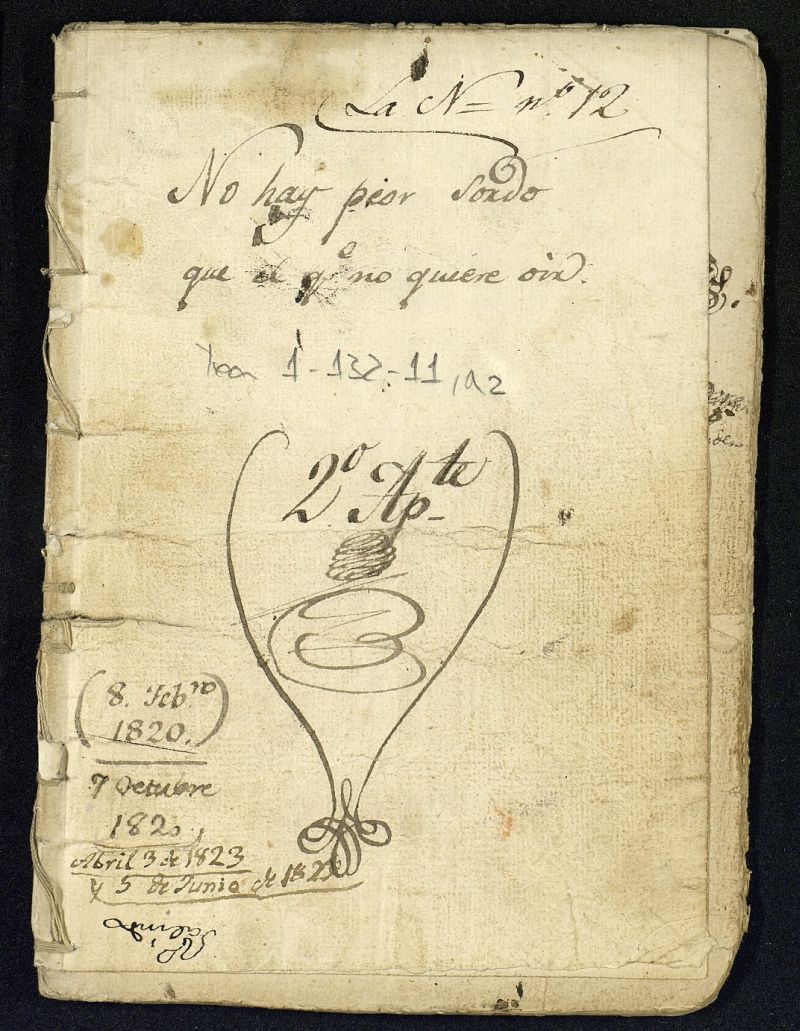 La N= n.º 12
No hay peor sordo
que el q.e no quiere oir.
Tea 1-132-11, a2
2.º Ap.te
(8. Feb.ro
1820.)
7 Octubre
182
Abril 3 de 1823
y 5 de Junio de 182